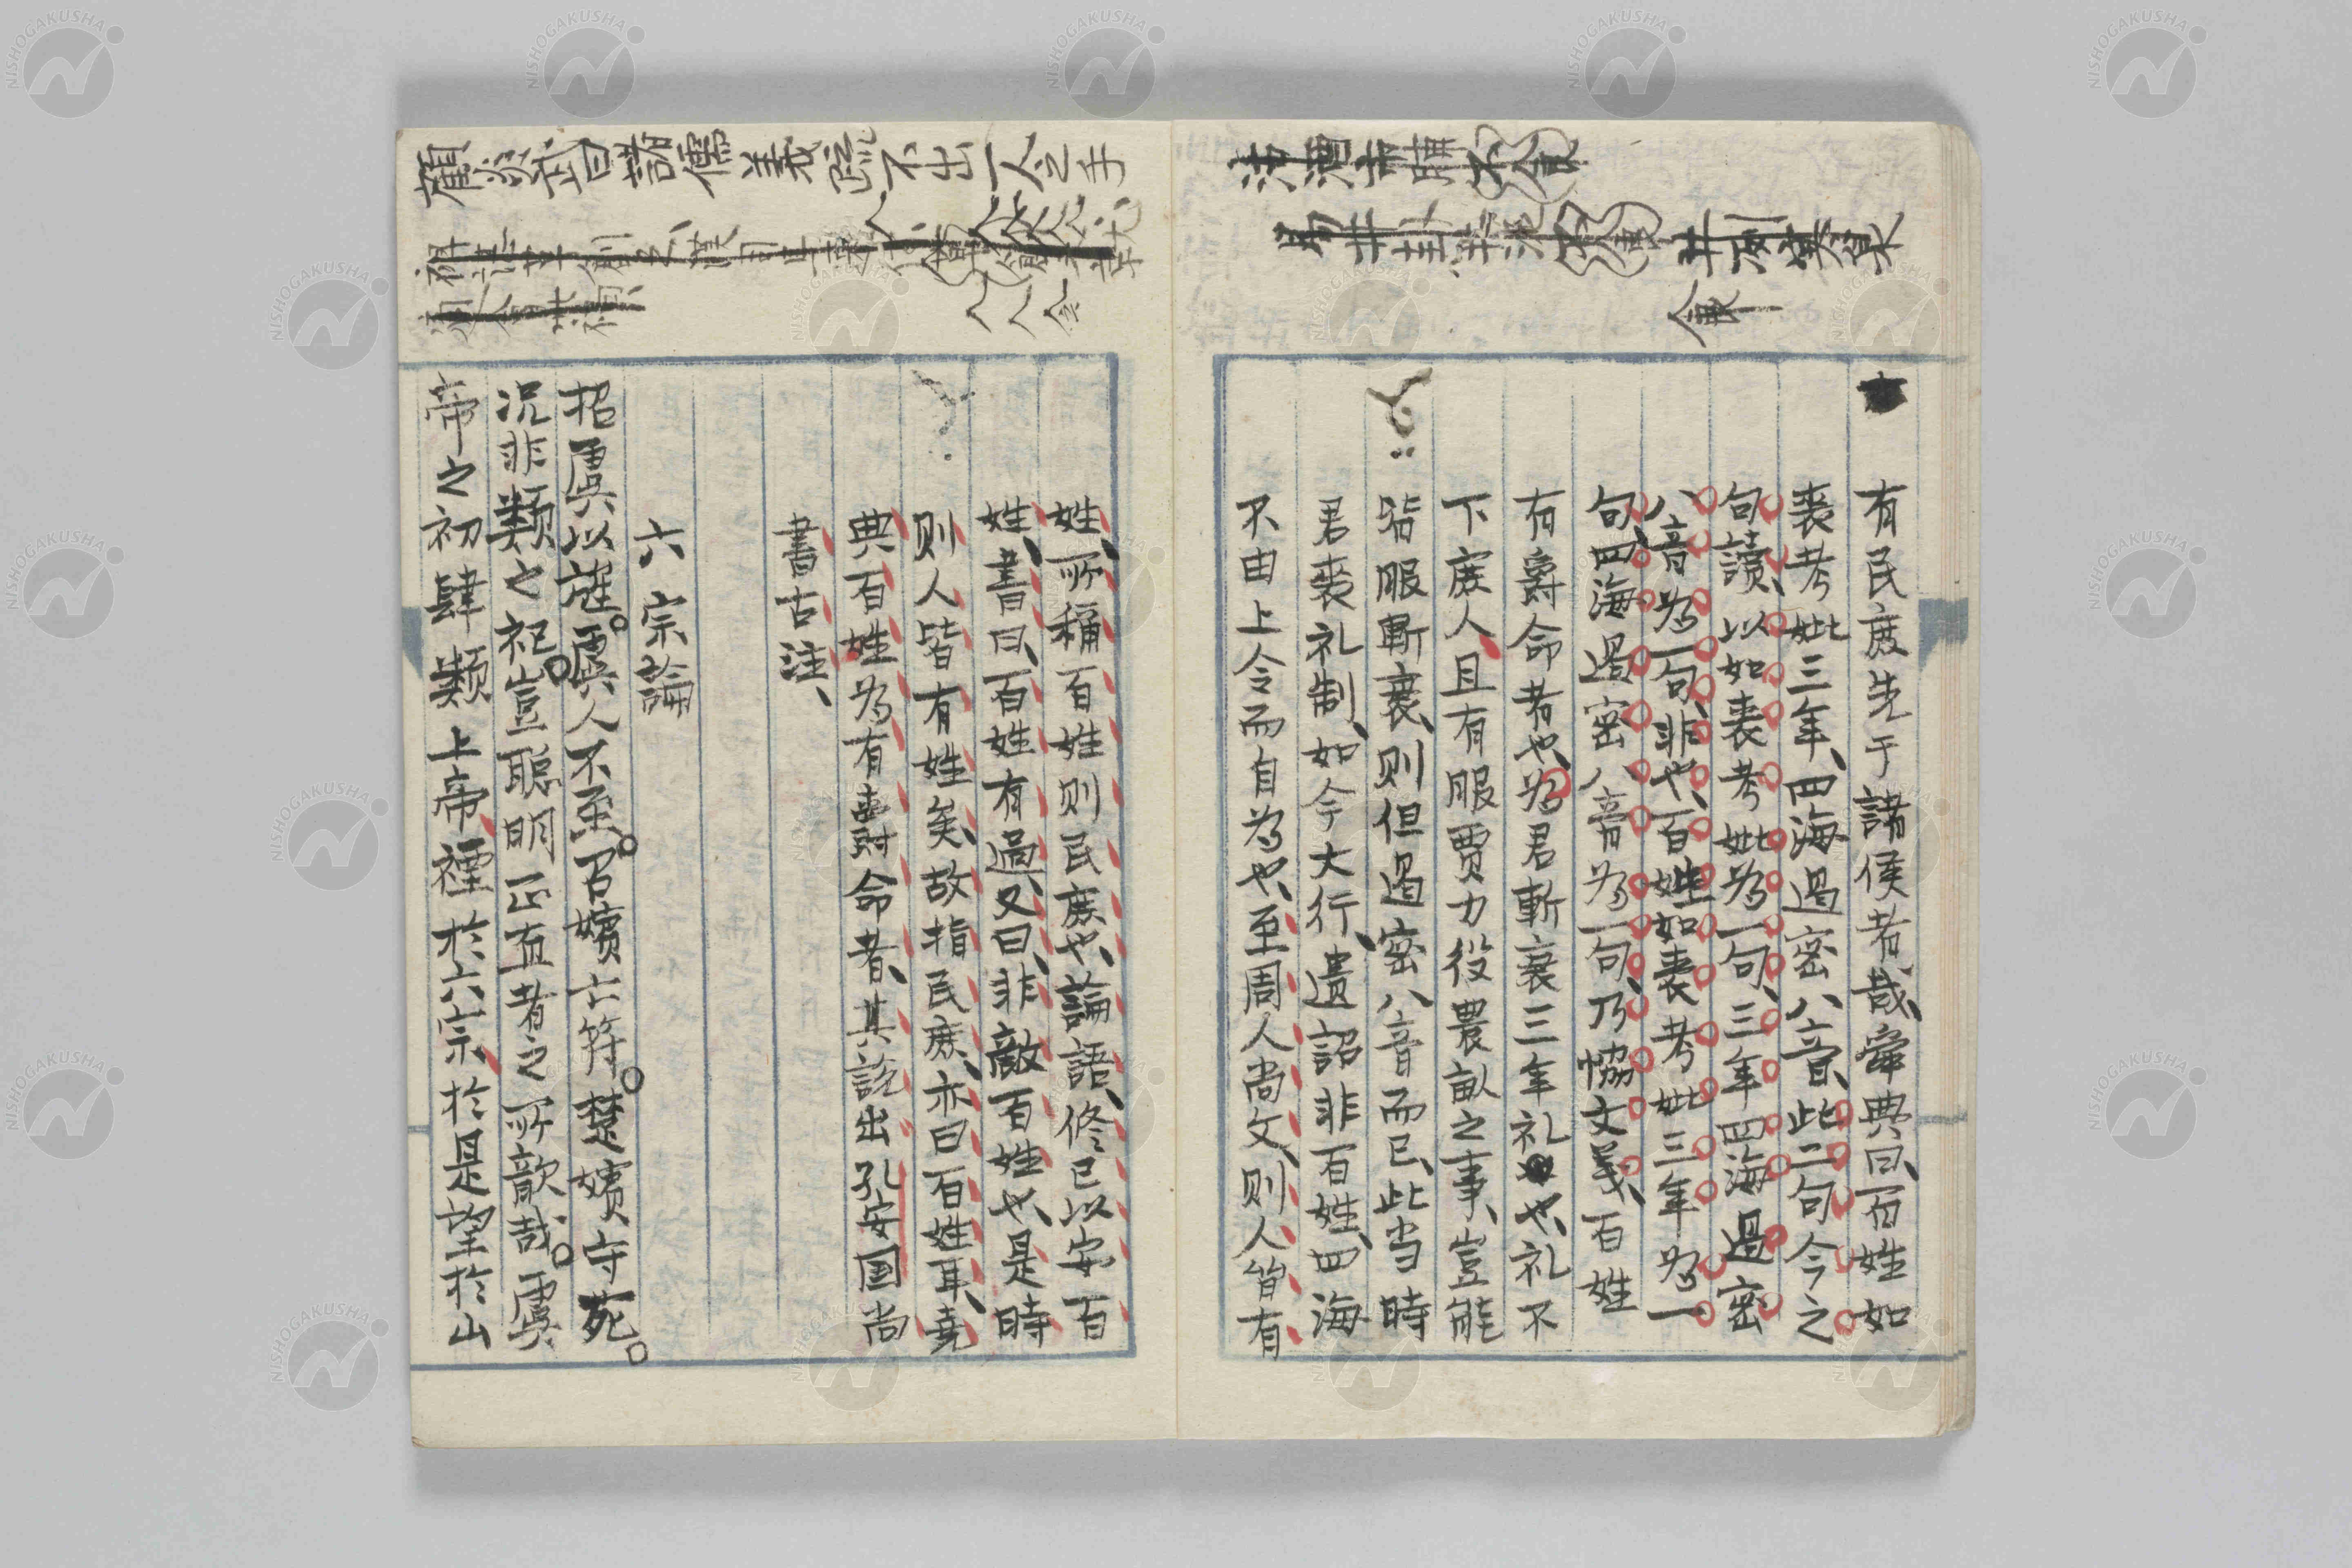 有民庶先于諸侯者哉、舜典曰、百姓如
喪考妣三年、四海遏密八音、此二句今之
句讀、以如喪考妣為一句、三年四海遏密
八音為一句、非也、百姓如喪考妣三年為一
句、四海遏密八音為一句、乃恊文義、百姓
有爵命者也、為君斬衰三年礼也、礼不
下庶人、且有服賈力役農畝之事、豈能
皆服斬衰、則但遏密八音而已、此当時
君喪礼制、如今大行、遺詔非百姓、四海
不由上令而自為也、至周人尚文、則人皆有
姓、所稱百姓則民庶也、論語、修己以安百
姓、書曰、百姓有過、又曰、非敵百姓也、是時
則人皆有姓矣、故指民庶、亦曰百姓耳、堯
典百姓為有爵命者、其説出孔安国尚
書古注、
六宗論
招虞以旌。虞人不至。召嬪六符。楚嬪守死。
况非類之祀。豈聰明正直者之所歆哉。虞
帝之初肆類上帝、禋於六宗、於是望於山
沽酒市脯不食
易井卦
井洌寒泉
食
顧炎武曰諸儒義疏不出一人之手
NISHOGAKUSHA